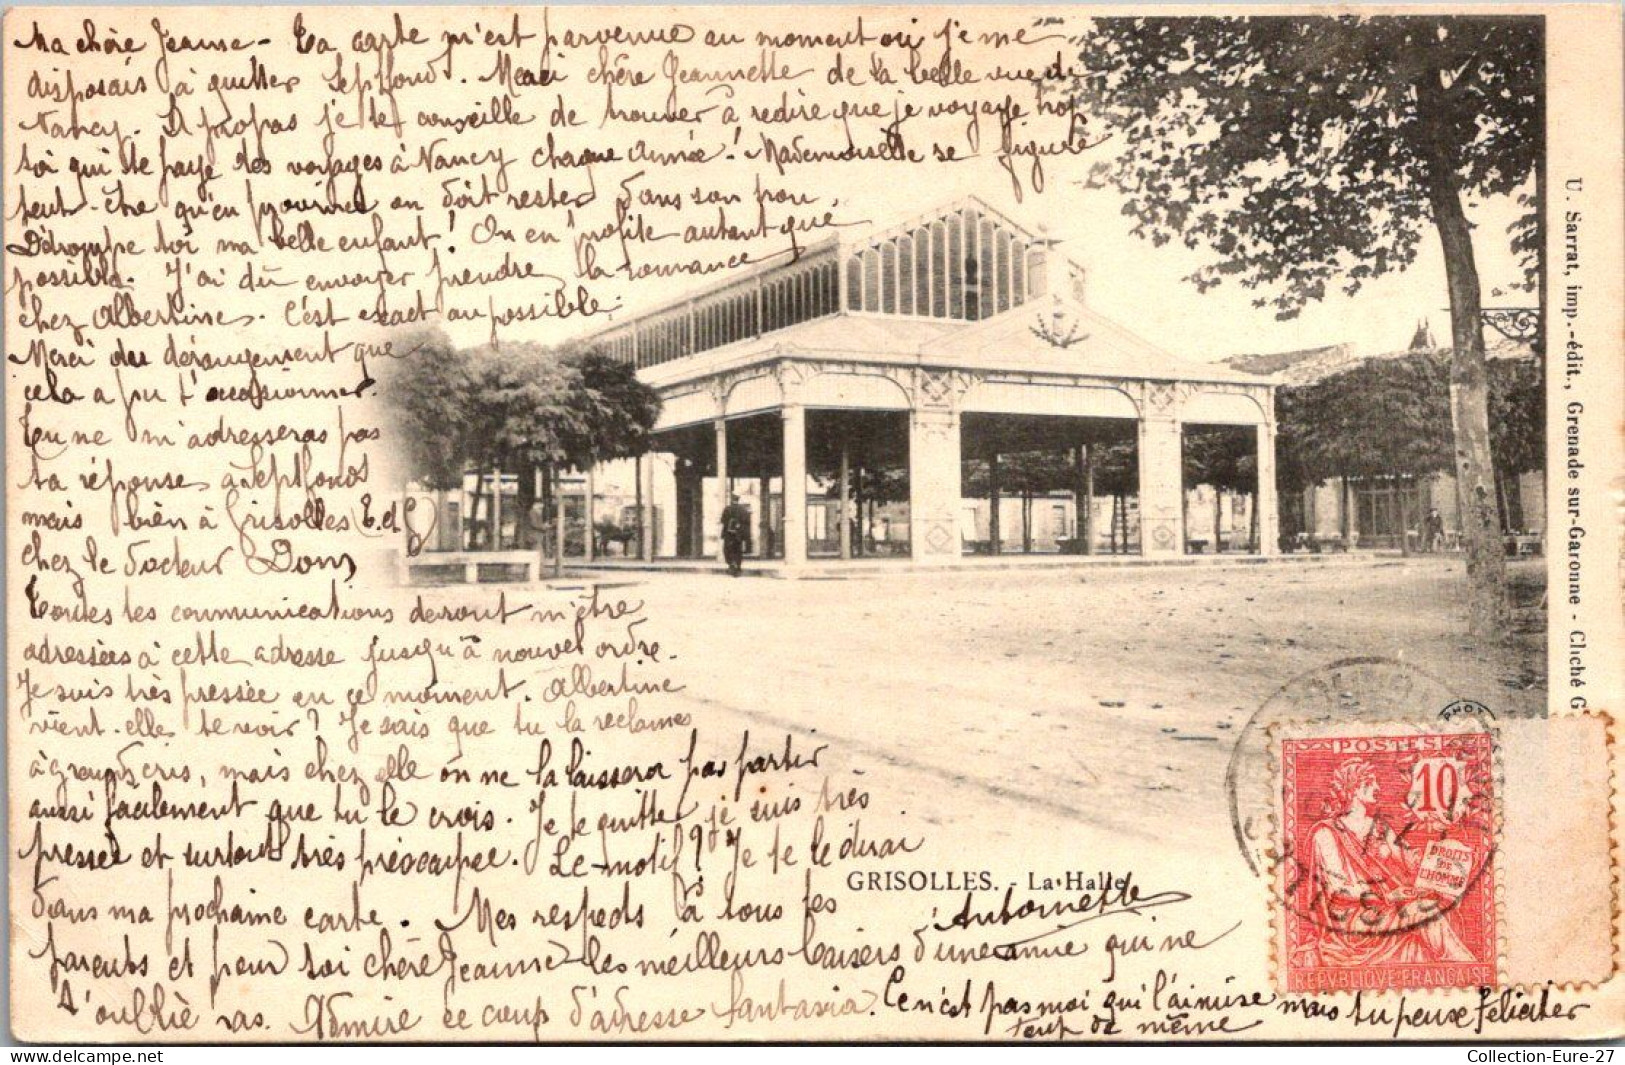 Ma chère Jeanne - Ta carte m'est parvenue au moment où je me
disposais à quitter Septfonds. Merci chère Jeannette de la belle vue de
Nancy. A propos je te conseille de trouver à redire que je voyage trop
toi qui te paye des voyages à Nancy chaque année! Mademoiselle se figure
peut-être qu'en province on doit rester dans son trou.
Détrompe toi ma belle enfant! On en profite autant que
possible. J'ai dû envoyer prendre la romance
chez Albertine. C'est exact au possible.
Merci du dérangement que
cela a pu t'occasionner.
Tu ne m'adresseras pas
ta réponse à Septfonds
mais bien à Grisolles (T. et G)
chez le docteur
Toutes les communications devront m'être
adressées à cette adresse jusqu'à nouvel ordre.
Je suis très pressée en ce moment. Albertine
vient-elle te voir? Je sais que tu la reclames
à grands cris, mais chez elle on ne la laissera pas partir
aussi facilement que tu le crois. Je te quitte, je suis très
pressée et surtout très préocupée. Le motif? Je te le dirai
dans ma prochaine carte. Mes respects à tous tes
parents et pour toi chère Jeanne les meilleurs baisers d'une amie qui ne
t'oublie pas. Antoinette
Admire ce coup d'adresse fantasia. Ce n'est pas moi qui l'ai mise mais tu peux féliciter
tout de même
GRISOLLES. - La Halle
U. Sarrat, imp.-édit., Grenade sur-Garonne - Cliché G
PHOT
POSTES
10
DROITS
DE
L'HOMME
REPVBLIQVE FRANÇAISE
Collection-Eure-27